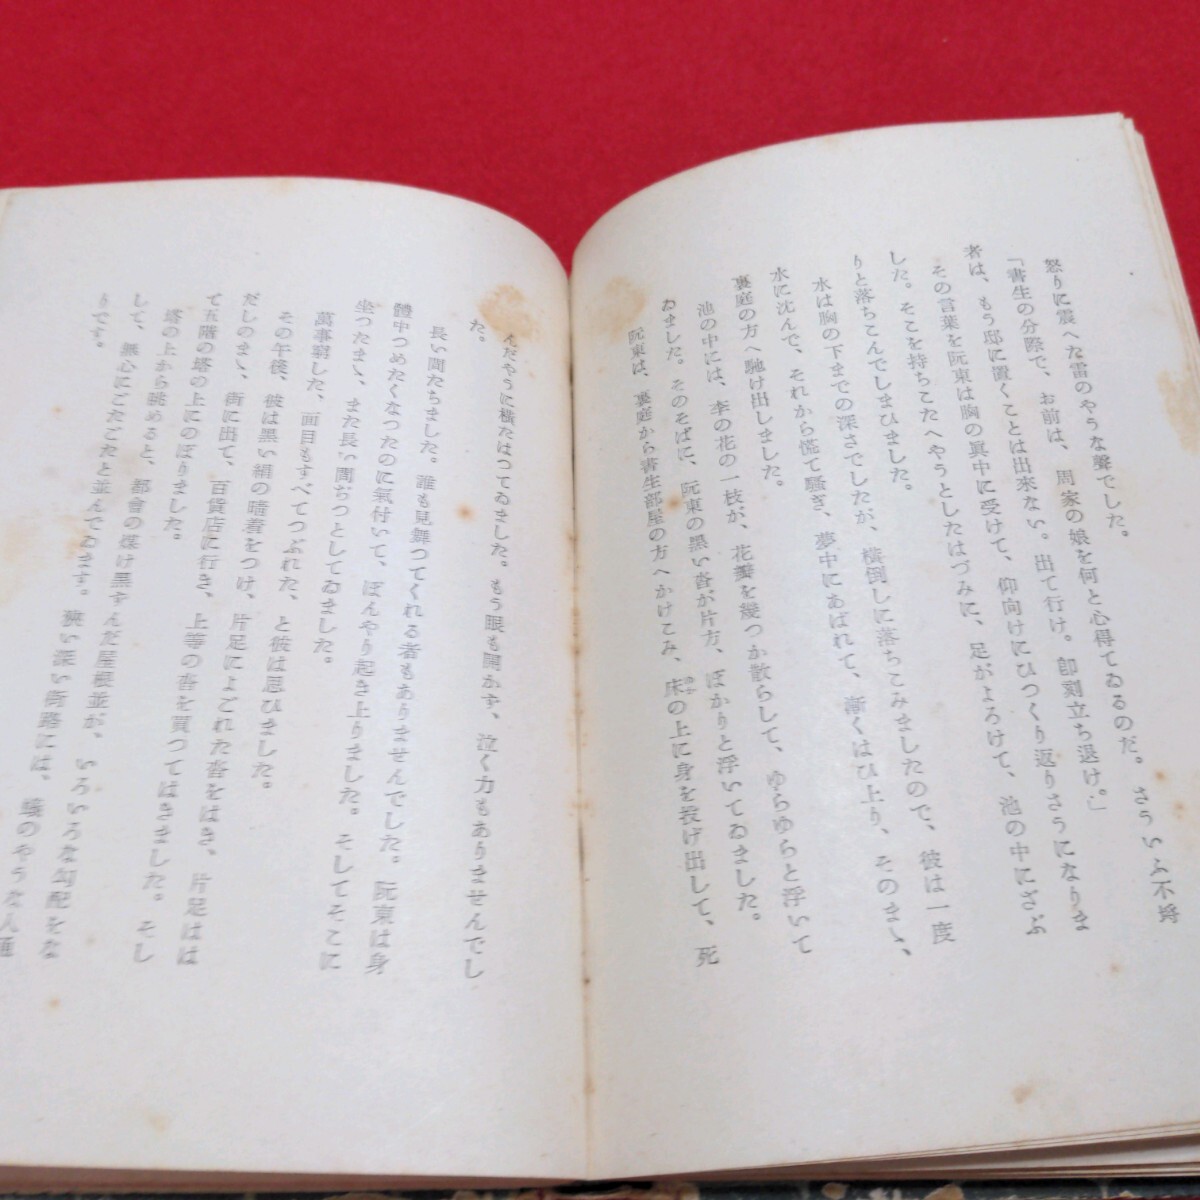 怒りに震へた雷のやうな聲でした。
「書生の分際で、お前は、周家の娘を何と心得てゐるのだ。さういふ不埒
者は、もう邸に置くことは出來ない。出て行け。卽刻立ち退け。」
その言葉を阮東は胸の眞中に受けて、仰向けにひつくり返りさうになりま
した。そこを持ちこたへやうとしたはづみに、足がよろけて、池の中にざぶ
りと落ちこんでしまひました。
水は胸の下までの深さでしたが、橫倒しに落ちこみましたので、彼は一度
水に沈んで、それから慌て騷ぎ、夢中にあばれて、漸くはひ上り、そのまゝ、
裏庭の方へ馳け出しました。
池の中には、李の花の一枝が、花瓣を幾つか散らして、ゆらゆらと浮いて
ゐました。そのそばに、阮東の黑い沓が片方、ぽかりと浮いてゐました。
阮東は、裏庭から書生部屋の方へかけこみ、床の上に身を投げ出して、死
んだやうに橫たはつてゐました。もう眼も開かず、泣く力もありませんでし
た。
長い間たちました。誰も見舞つてくれる者もありませんでした。阮東は身
體中つめたくなつたのに氣付いて、ぼんやり起き上りました。そしてそこに
坐つたまゝ、また長い間ぢつとしてゐました。
萬事窮した、面目もすべてつぶれた、と彼は思ひました。
その午後、彼は黑い絹の晴着をつけ、片足によごれた沓をはき、片足はは
だしのまゝ、街に出て、百貨店に行き、上等の沓を買つてはきました。そし
て五階の塔の上にのぼりました。
塔の上から眺めると、都會の煤け黑ずんだ屋根並が、いろいろな勾配をな
して、無心にごたごたと並んでゐます。狹い深い街路には、蟻のやうな人通
りです。